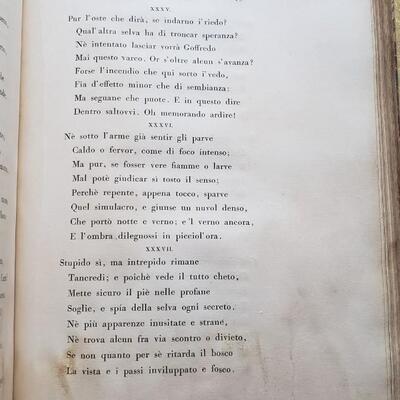 XXXV.
Pur l'oste che dirà, se indarno i'riedo?
Qual'altra selva ha di troncar speranza?
Nè intentato lasciar vorrà Goffredo
Mai questo varco. Or s'oltre alcun s'avanza?
Forse l'incendio che qui sorto i'vedo,
Fia d'effetto minor che di sembianza:
Ma seguane che puote. E in questo dire
Dentro saltovvi. Oh memorando ardire!
XXXVI.
Nè sotto l'arme già sentir gli parve
Caldo o fervor, come di foco intenso;
Ma pur, se fosser vere fiamme o larve
Mal potè giudicar sì tosto il senso;
Perchè repente, appena tocco, sparve
Quel simulacro, e giunse un nuvol denso,
Che portò notte e verno; e'l verno ancora,
E l'ombra dileguossi in picciol'ora.
XXXVII.
Stupido sì, ma intrepido rimane
Tancredi; e poichè vede il tutto cheto,
Mette sicuro il piè nelle profane
Soglie, e spía della selva ogni secreto.
Nè più apparenze inusitate e strane,
Nè trova alcun fra via scontro o divieto,
Se non quanto per sè ritarda il bosco
La vista e i passi inviluppato e fosco.